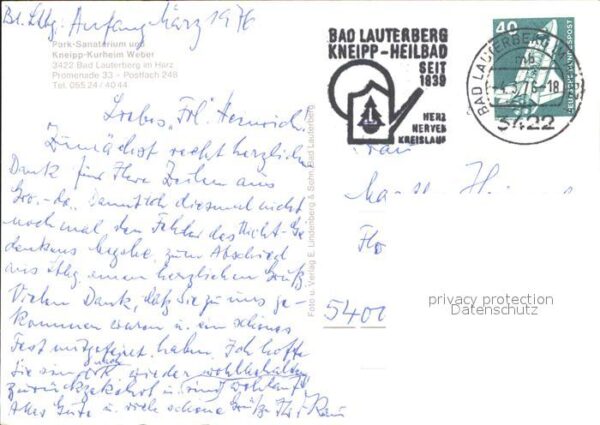 Anfang März 1976
Park-Sanatorium und
Kneipp-Kurheim Weber
3422 Bad Lauterberg im Harz
Promenade 33 - Postfach 248
Tel. 055 24 / 40 44
BAD LAUTERBERG
KNEIPP-HEILBAD
SEIT
1839
HERZ
NERVEN
KREISLAUF
BAD LAUTERBERG
76-18
3422
40
DEUTSCHE BUNDESPOST
Liebes "Frl." Heinrich!
Zunächst recht herzlichen
Dank für Ihre Zeilen aus
Damit ich diesmal nicht
noch mal den Fehler des Nicht-Ge
denkens begehe, zum Abschied
aus Lbg. einen herzlichen Gruß.
Vielen Dank, daß Sie zu uns ge-
kommen waren u. ein schönes
Fest mitgefeiert haben. Ich hoffe
Sie sind auch wieder wohlbehalten
zurückgekehrt u. sind wohlauf.
Alles Gute u. viele schöne Grüße Ihr
Foto u. Verlag E. Lindenberg & Sohn, Bad Lauterberg
Frau
5400
privacy protection
Datenschutz